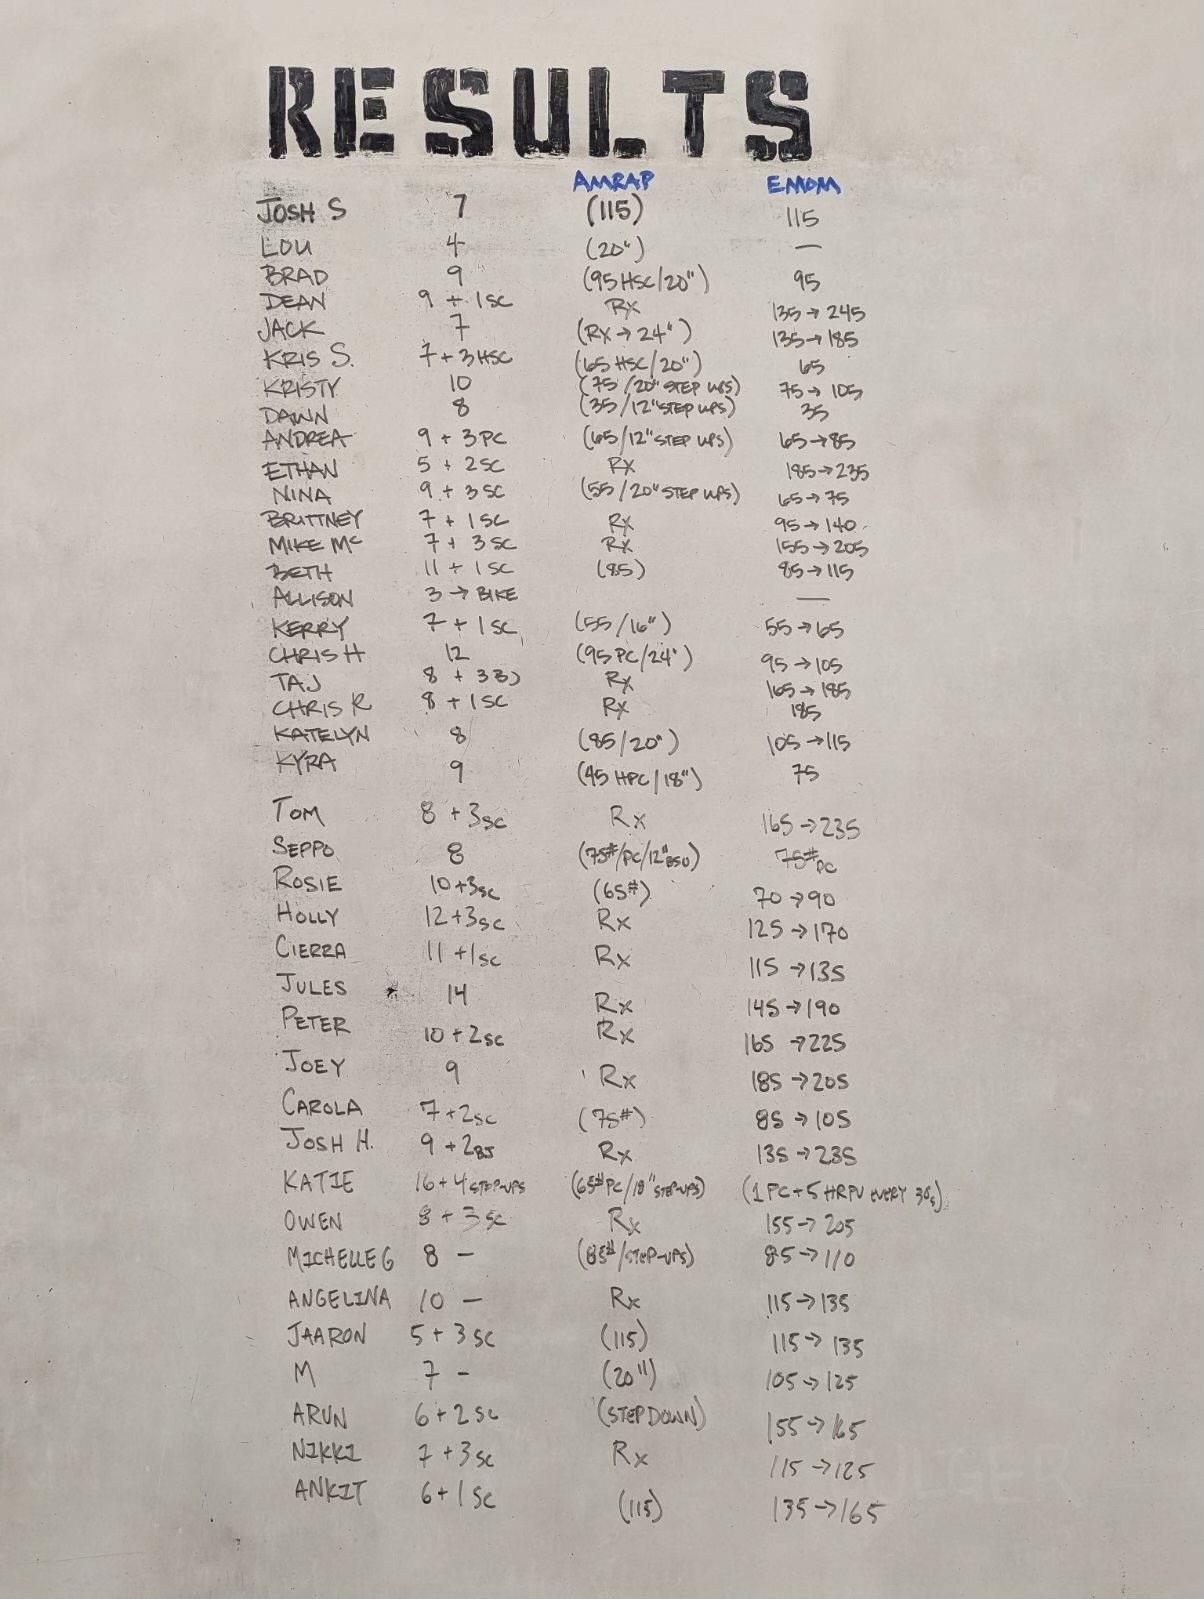 RESULTS
AMRAP EMOM
JOSH S 7 (115) 115
LOU 4 (20") —
BRAD 9 (95 HSC/20") 95
DEAN 9 + 1SC RX 135→245
JACK 7 (RX→24") 135→185
KRIS S. 7+3HSC (65 HSC/20") 65
KRISTY 10 (75/20" STEP UPS) 75→105
DAWN 8 (35/12" STEP UPS) 35
ANDREA 9 + 3PC (65/12" STEP UPS) 65→85
ETHAN 5 + 2SC RX 185→235
NINA 9 + 3SC (55/20" STEP UPS) 65→75
BRITTNEY 7 + 1SC RX 95→140
MIKE Mc 7 + 3SC RX 155→205
BETH 11 + 1SC (85) 85→115
ALLISON 3 → BIKE —
KERRY 7 + 1SC (55/16") 55→65
CHRIS H 12 (95 PC/24") 95→105
TAJ 8 + 3BJ RX 165→185
CHRIS R 8 + 1SC RX 185
KATELYN 8 (85/20") 105→115
KYRA 9 (45 HPC/18") 75
TOM 8 + 3SC Rx 165→235
SEPPO 8 (75#/PC/12" BSU) 75# PC
ROSIE 10+3SC (65#) 70→90
HOLLY 12+3SC Rx 125→170
CIERRA 11+1SC Rx 115→135
JULES 14 Rx 145→190
PETER 10+2SC Rx 165→225
JOEY 9 Rx 185→205
CAROLA 7+2SC (75#) 85→105
JOSH H. 9+2BJ Rx 135→235
KATIE 16+4 STEP-UPS (65# PC/18" STEP-UPS) (1 PC+5 HRPU EVERY 30s)
OWEN 8 + 3SC Rx 155→205
MICHELLE G 8 — (85#/STEP-UPS) 85→110
ANGELINA 10 — Rx 115→135
JAARON 5+3SC (115) 115→135
M 7 - (20") 105→125
ARUN 6+2SC (STEP DOWN) 155→165
NIKKI 7+3SC Rx 115→125
ANKIT 6+1SC (115) 135→165